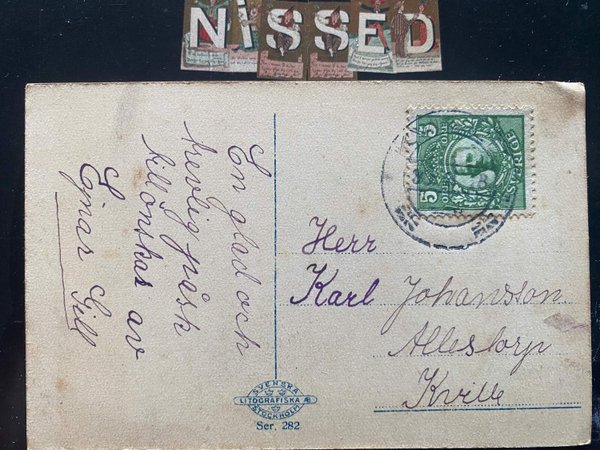 NISSED
En glad och
trevlig påsk
tillönskas av
Ejnar Gill
5 5
SVERIGE
Herr
Karl Johansson
Allestorp
Kville
SVENSKA
LITOGRAFISKA Æ
STOCKHOLM
Ser. 282